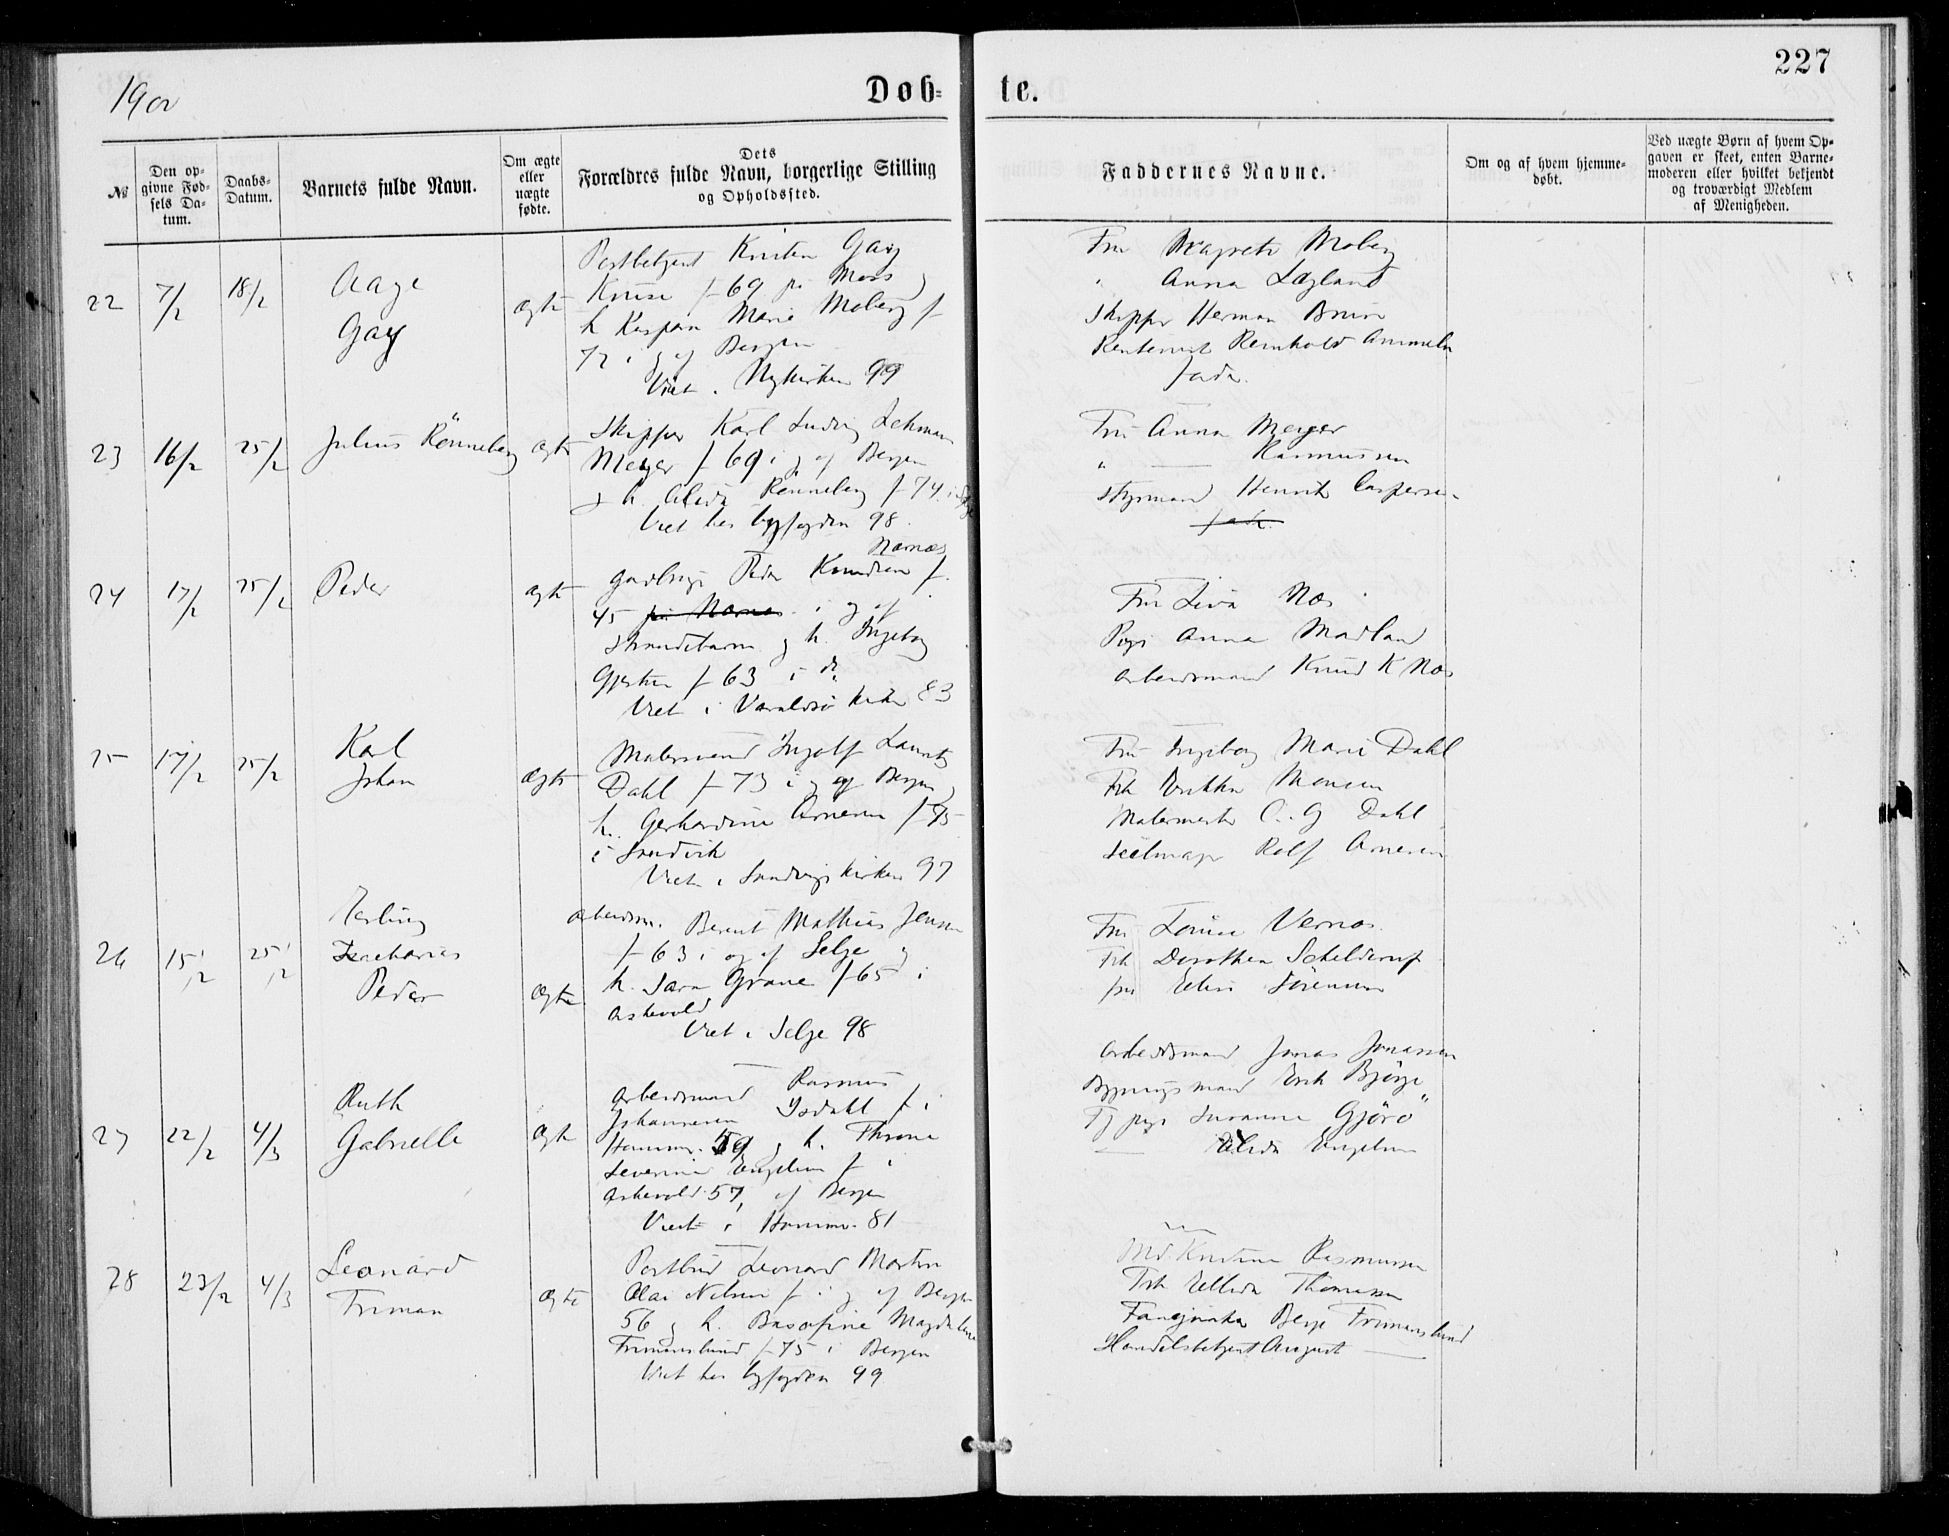 227
1900
Døb-
te.
№
Den op-
givne Fød-
sels Da-
tum.
Daabs-
Datum.
Barnets fulde Navn.
Om ægte
eller
uægte
fødte.
Dets
Forældres fulde Navn, borgerlige Stilling
og Opholdssted.
Faddernes Navne.
Om og af hvem hjemme-
døbt.
Ved uægte Børn af hvem Op-
gaven er skeet, enten Barne-
moderen eller hvilket bekjendt
og troværdigt Medlem
af Menigheden.
22
7/2
18/2
Aage
Gay
Ægte
Postbetjent Kristen Gay
Kruse f 69 på Moss og
h Kaspara Marie Moberg f
72 i og af Bergen
Viet i Nykirken 99
Fru Magrete Moberg
" Anna Lægland
Skipper Herman Bruse
Reinhold Ammeln
Fader
23
16/2
25/2
Julius Rönneberg
Ægte
Skipper Karl Ludvig Lehman
Meyer f 69 i og af Bergen
og h. Alida Rönneberg f 74 i
Viet hos byfogden 98
Fru Anna Meyer
" — Rasmussen
Styrmand Henrik Caspersen
24
17/2
25/2
Peder
Ægte
Nærnæs
Gaardbrug Peder Knudsen f.
45 på Nærnæs i og af
Strandebarm og h. Ingeborg
Gjerstsen f 63 i do
Viet i Varaldsö kirke 83
Fru Siva Næs
Pige Anna Madland
Arbeidsmand Knud K Næs
25
17/2
25/2
Karl
Johan
Ægte
Malersvend Ingolf Lauritz
Dahl f 73 i og af Bergen og
h. Gerhardine Arnesen f 75
i Sandvik
Viet i Sandvigskirken 97
Fru Ingeborg Marie Dahl
Frk Erikka Monsen
Malermester C. G Dahl
Seilmager Rolf Arnesen
26
15/2
25/2
Erling
Zacharias
Peder
Ægte
Arbeidsm. Berent Mathias Jensen
f 63 i og af Selje og
h. Sara Grane f 65 i
Askevold
Viet i Selje 98
Fru Louise Vernøs
Frk Dorothea Schelderup
fru Elise Sörensen
Arbeidsmand Jonas Jonassen
27
22/2
4/3
Ruth
Gabrielle
Ægte
Arbeidsmand Rasmus
Johannesen Isdahl f i
Hammer 59 og h. Thrine
Severine Engelsen f i
Askevold 57, af Bergen
Viet i Hammer 81
Bygningsmand Erik Bjørge
Tj pige Susanne Gjörö
— Elida Engelsen
28
23/2
4/3
Leonard
Friman
Ægte
Postbud Leonard Martin
Olai Nilsen f i og af Bergen
56 og h. Magdalene
Frimanslund f 75 i Bergen
Viet hos byfogden 99
Md. Kristine Rasmussen
Frk Ellida Thomesen
Berge Frimanslund
Handelsbetjent August —